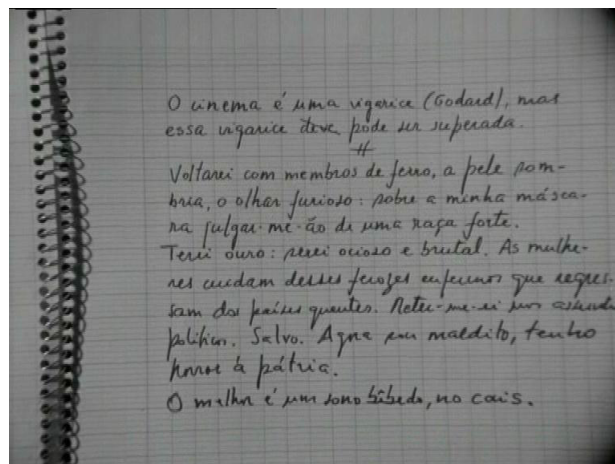 O cinema é uma vigarice (Godard), mas
essa vigarice deve, pode ser superada.
#
Voltarei com membros de ferro, a pele som-
bria, o olhar furioso: sobre a minha másca-
ra julgar-me-ão de uma raça forte.
Terei ouro: serei ocioso e brutal. As mulhe-
res cuidam desses ferozes enfermos que regres-
sam dos países quentes. Meter-me-ei nos assuntos
políticos. Salvo. Agora sou maldito, tenho
horror à pátria.
O melhor é um sono bêbedo, no cais.